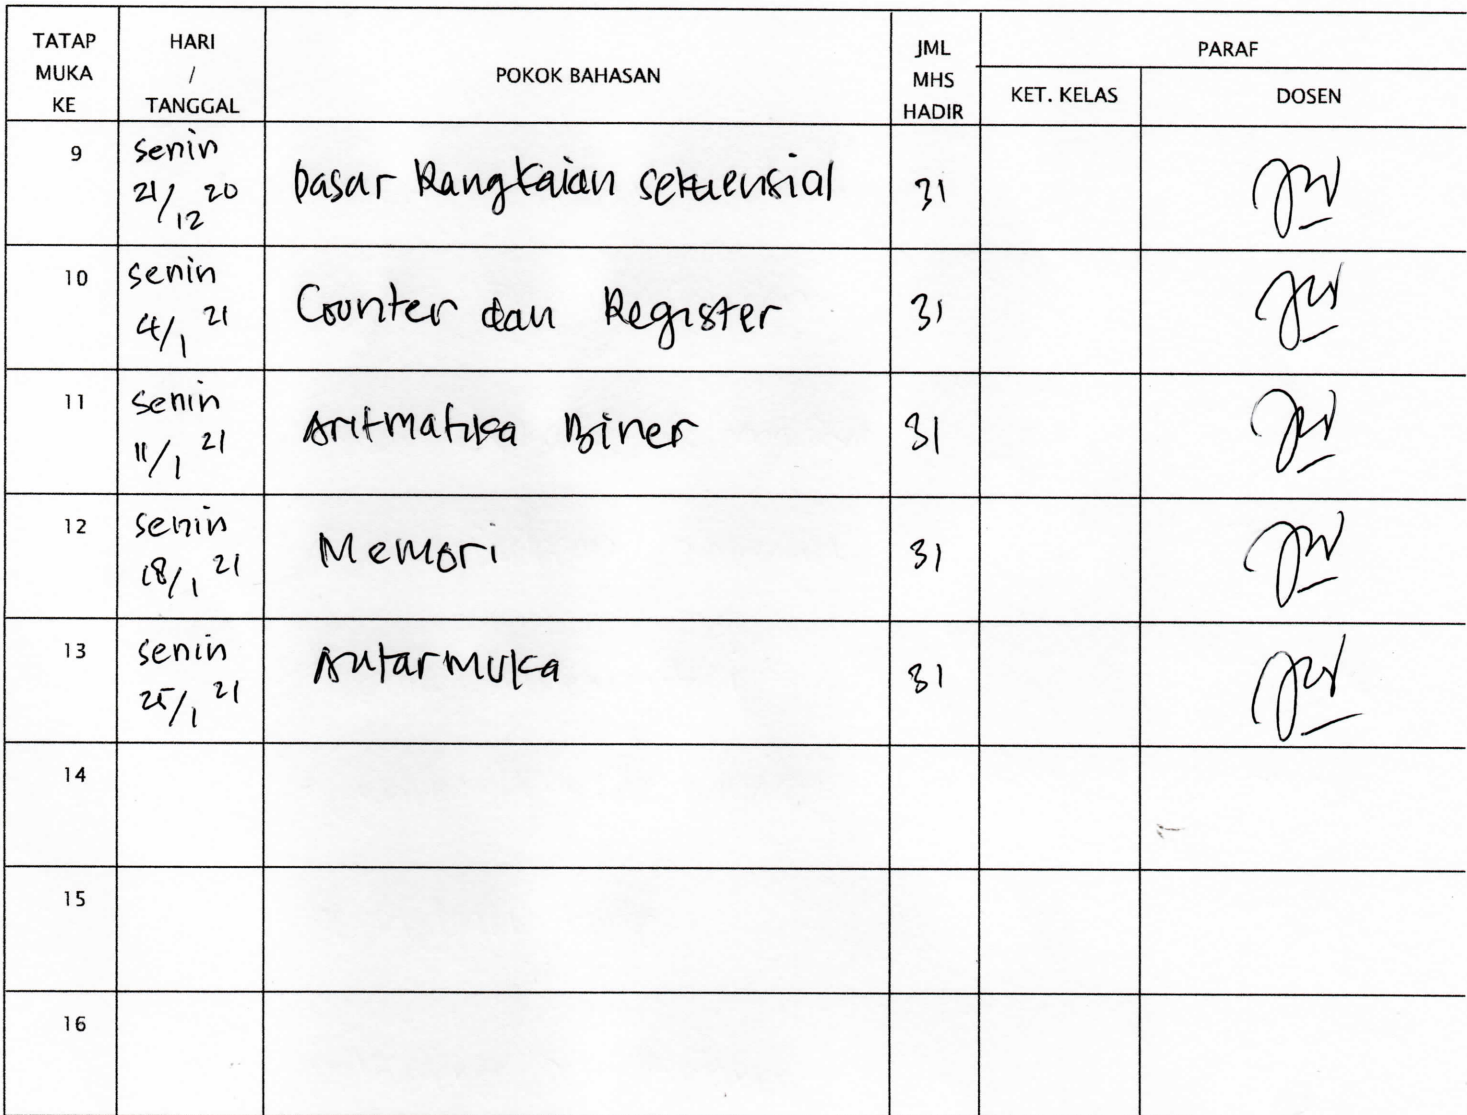 TATAP MUKA KE
HARI / TANGGAL
POKOK BAHASAN
JML MHS HADIR
PARAF
KET. KELAS
DOSEN
9
senin
21/12 20
Dasar Rangkaian sekuensial
31
10
senin
4/1 21
Counter dan Register
31
11
senin
11/1 21
Aritmatika Biner
31
12
senin
18/1 21
Memori
31
13
senin
25/1 21
Antarmuka
31
14
15
16